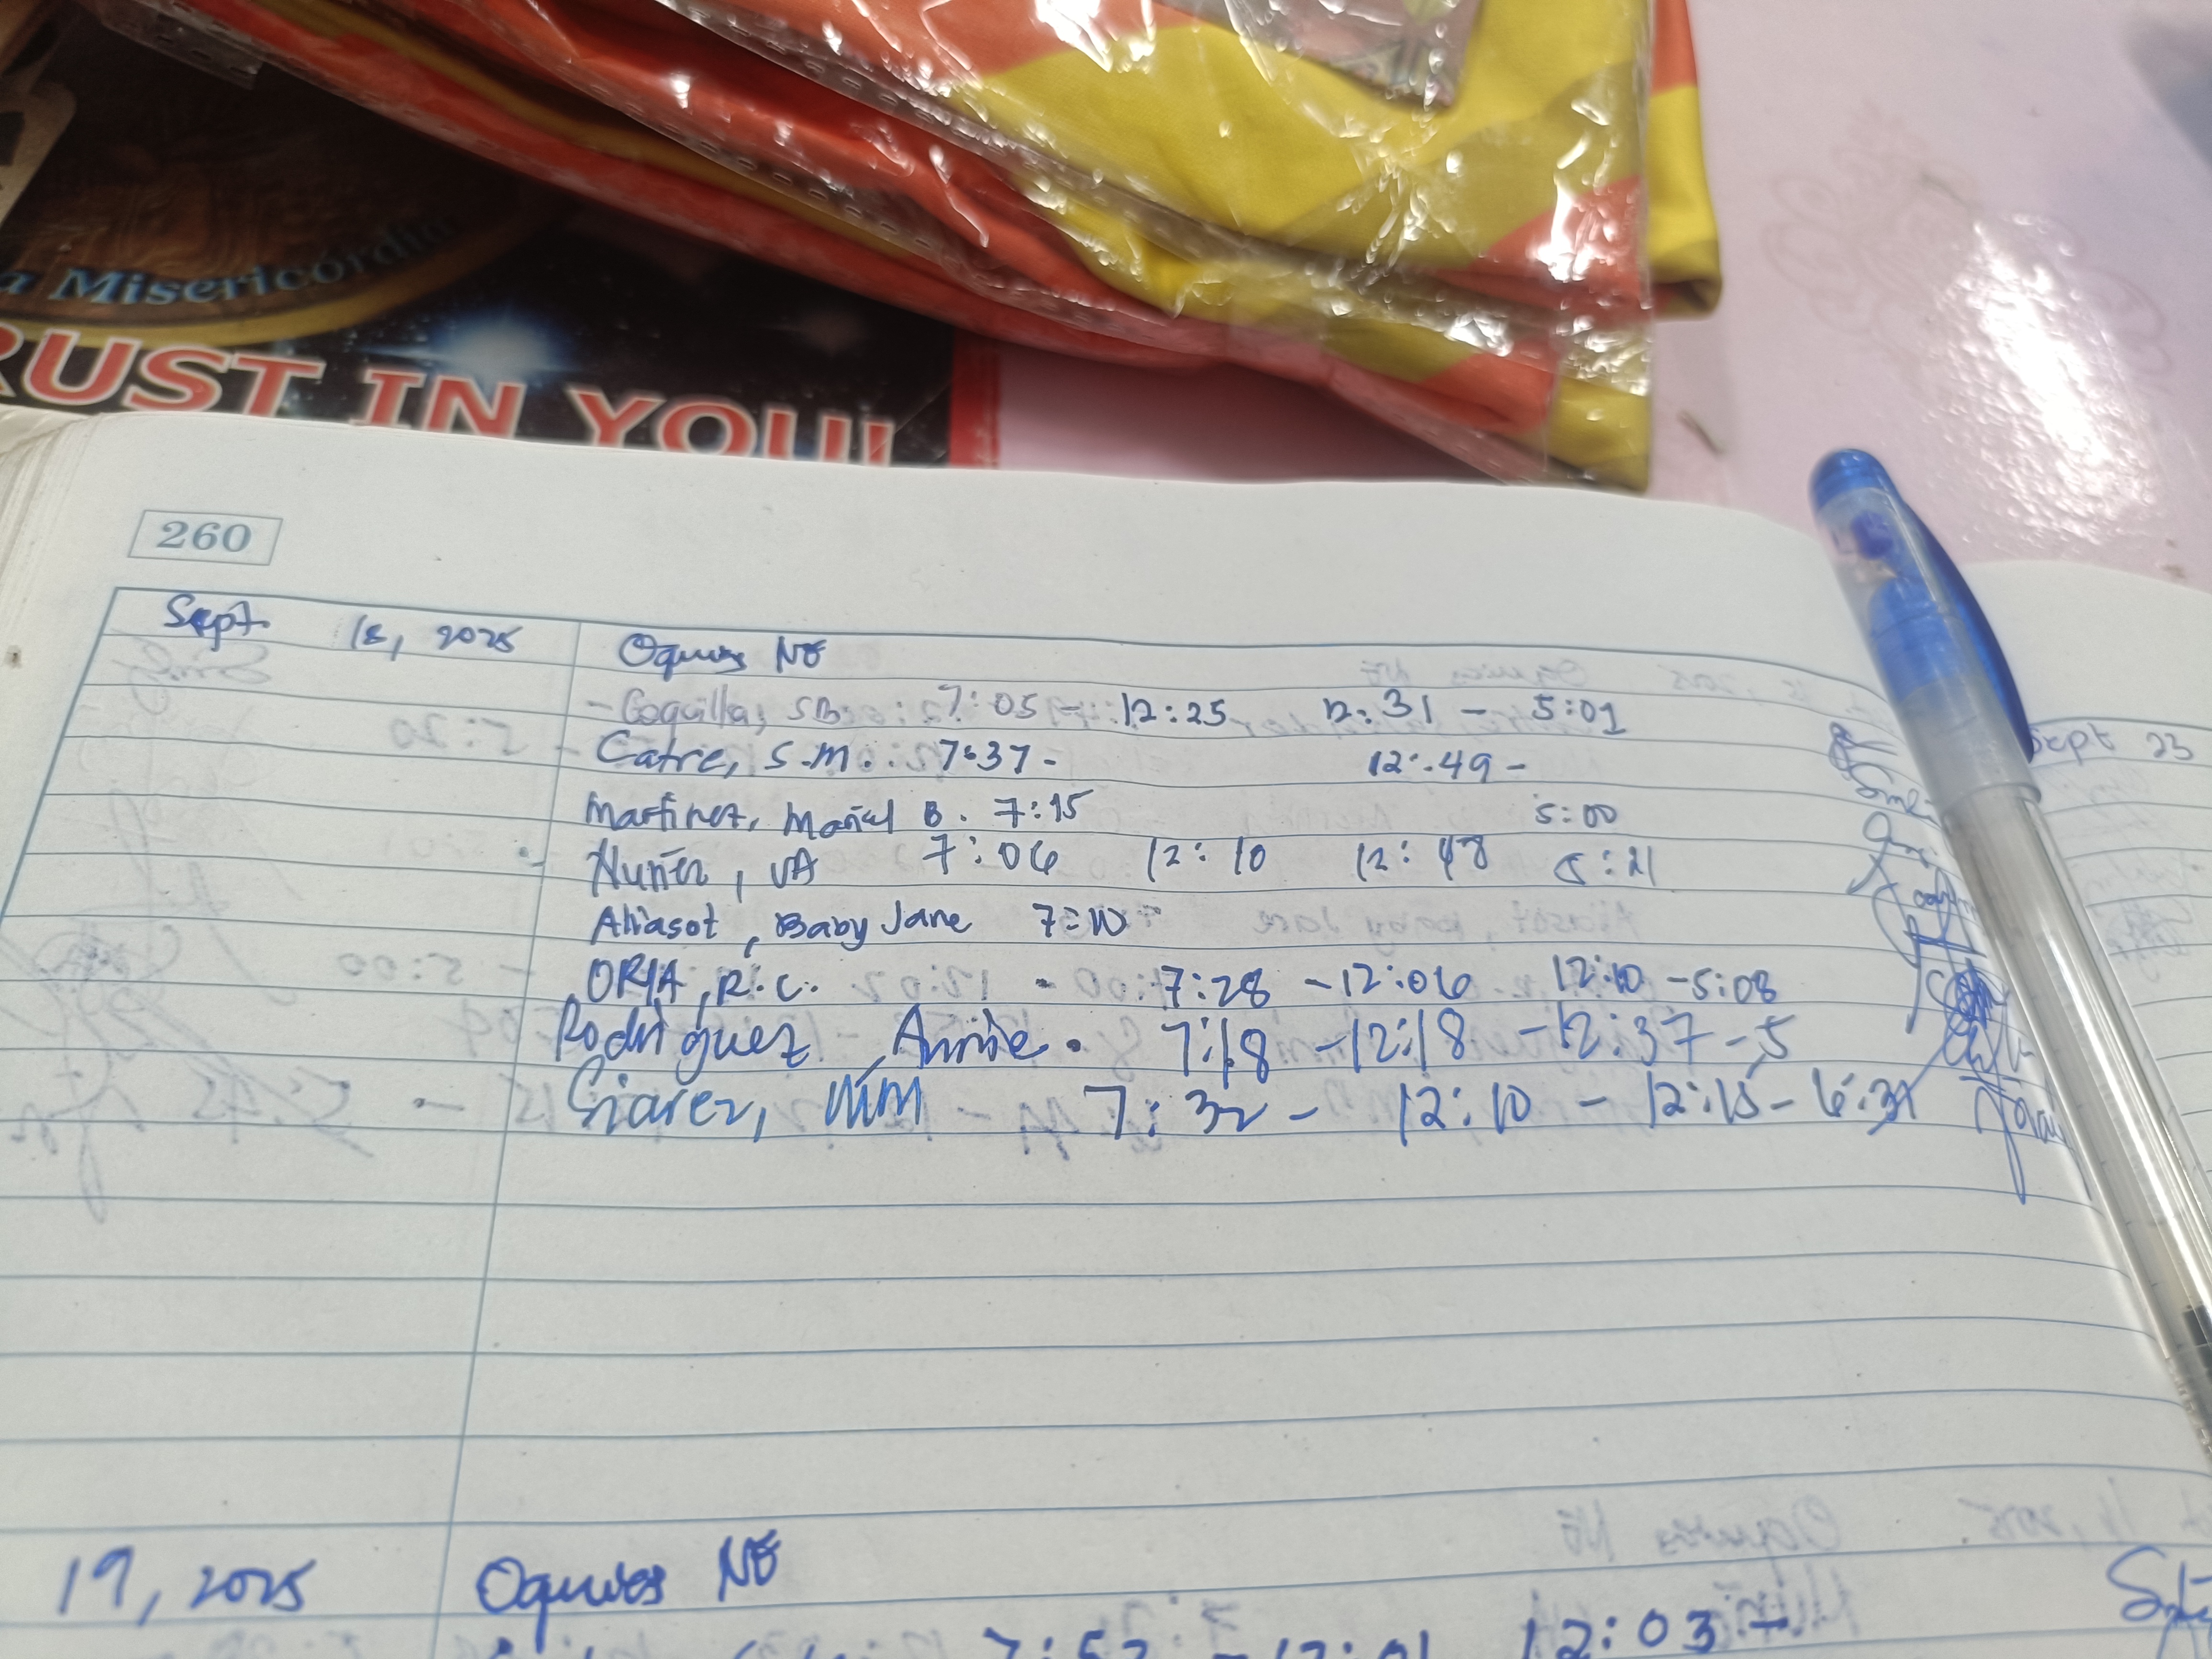 a Misericordia
RUST IN YOU!
260
Sept. 18, 2025 Oquias NE
- Coquilla, SB. 7:05 - 12:25 12:31 - 5:01
Catre, S.M. 7:37 - 12:49 -
Martinez, Maricel B. 7:15 5:00
Nuñez, VA 7:06 12:10 12:48 5:21
Aliasot, Baby Jane 7:10
ORIA, R.C. - 7:28 - 12:06 12:10 - 5:08
Rodriguez, Annie. 7:18 - 12:18 - 12:37 - 5
Siarez, MM 7:32 - 12:10 - 12:15 - 6:31
Sept 23
19, 2025 Oquias NE
12:03 -